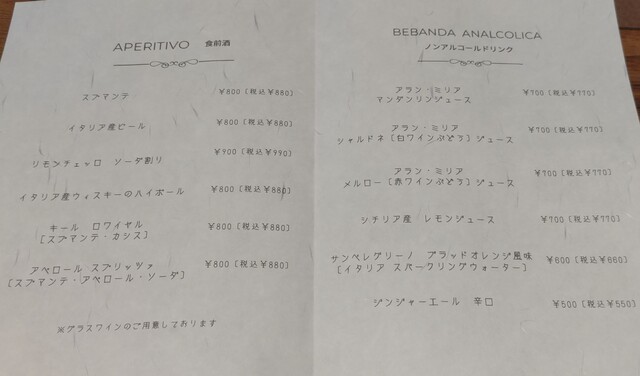 APERITIVO 食前酒
スプマンテ ¥800〔税込¥880〕
イタリア産ビール ¥800〔税込¥880〕
リモンチェッロ ソーダ割り ¥900〔税込¥990〕
イタリア産ウィスキーのハイボール ¥800〔税込¥880〕
キール ロワイヤル ¥800〔税込¥880〕
〔スプマンテ・カシス〕
アペロール スプリッツァ ¥800〔税込¥880〕
〔スプマンテ・アペロール・ソーダ〕
※グラスワインのご用意しております
BEBANDA ANALCOLICA
ノンアルコールドリンク
アラン・ミリア
マンダンリンジュース ¥700〔税込¥770〕
アラン・ミリア
シャルドネ〔白ワインぶどう〕ジュース ¥700〔税込¥770〕
アラン・ミリア
メルロー〔赤ワインぶどう〕ジュース ¥700〔税込¥770〕
シチリア産 レモンジュース ¥700〔税込¥770〕
サンペレグリーノ ブラッドオレンジ風味 ¥600〔税込¥660〕
〔イタリア スパークリングウォーター〕
ジンジャーエール 辛口 ¥500〔税込¥550〕